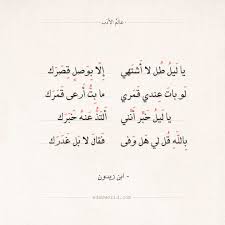 عالم الأدب
يا لَيلُ طُل لا أَشتَهي إِلّا بِوَصلٍ قِصَرَك
لَو باتَ عِندي قَمَري ما بِتُّ أَرعى قَمَرَك
يا لَيلُ خَبِّر أَنَّني أَلتَذُّ عَنهُ خَبَرَك
بِاللَهِ قُل لي هَل وَفى فَقالَ لا بَل غَدَرَك
- ابن زيدون -